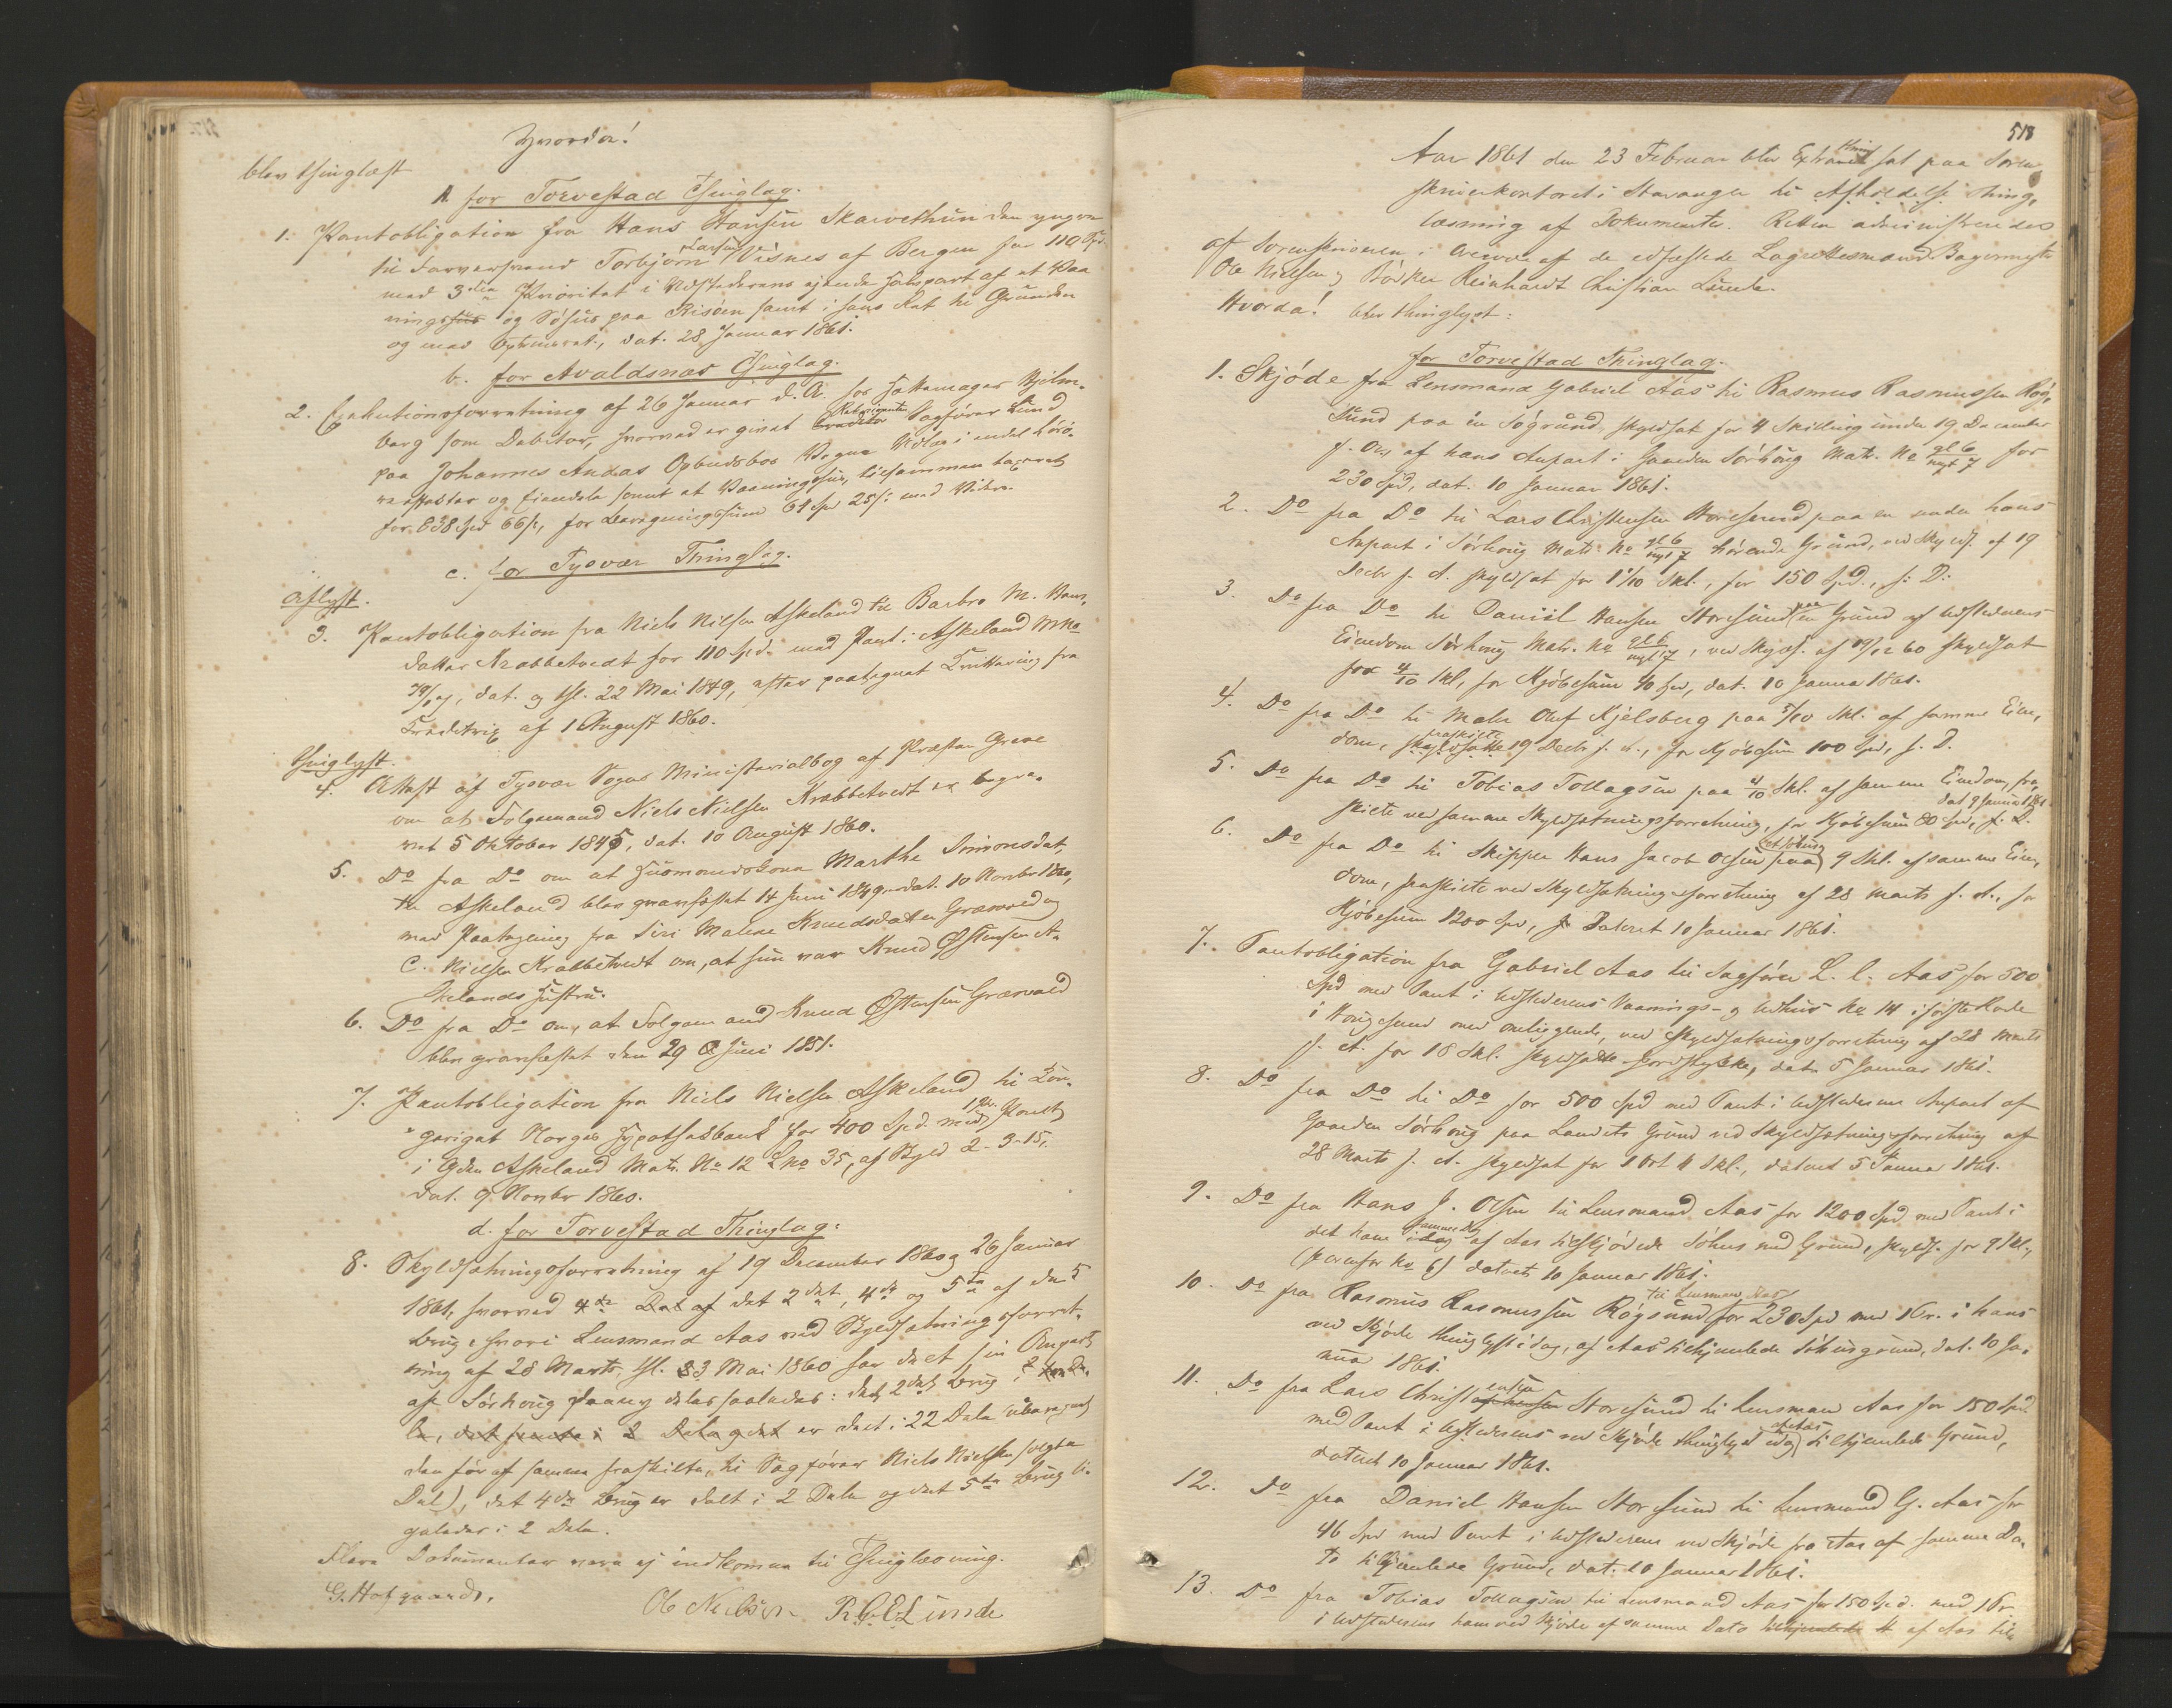 Hvorda!
blev thinglæst
A for Torvestad Thinglag.
1. Pantobligation fra Hans Hansen Skarvethun den yngre
til Farversvend Torbjørn Larsen Visnes af Bergen for 119 Spd.
med 3die Prioritet i Udstederens ejende Halvpart af et Vaa
ningshus og Søhus paa Risøen samt i hans Ret til Grunden
og med Opteneret, dat. 28 Januar 1861.
b. for Avaldsnæs Thinglag.
2. Exekutionsforretning af 26 Januar d. A. hos Hattemager Hjelm-
berg som Debitor, hvorved er givet Rekvirenten Sagfører Lund
paa Johannes Andas Opbudsbos Vegne Udlæg i endel Løsø-
reeffecter og Eiendele samt et Vaaningshus, tilsammen taxeret
for 838 Spd 66 s, for Beregningssum 61 Spd 25 s: med Videre.
c. for Tysvær Thinglag.
Aflyst.
3. Pantobligation fra Niels Nilsen Askeland til Barbro M. Hans-
datter Krabbetvedt for 110 Spd. med Pant i Askeland MNo
dat. og thl. 22 Mai 1849, efter paategnet Kvittering fra
Kreditrix af 1 August 1860.
Thinglyst.
4. Attest af Tysvær Sogns Ministerialbog af Præsten Greve
om at Folgemand Niels Nielsen Krabbetvedt er begra-
vet 5 Oktober 1845, dat. 10 August 1860.
5. Do fra Do om at Husmandskone Marthe Simonsdat-
ter Askeland blev gravfæstet 14 Juni 1849, dat. 10 Novbr 1860,
med Paategning fra Siri Malene Knudsdatter Grævold og
C. Nielsen Krabbetvedt om, at hun var Knud Østensen A-
skelands Hustru.
6. Do fra Do om, at Folgemand Knud Østensen Grævold
blev gravfæstet den 29 Juni 1851.
7. Pantobligation fra Niels Nielsen Askeland til Kon-
geriget Norges Hypothekbank for 400 Spd. med 1 Pr. Panteret
i Gden Askeland Matr. No 12 LNo 35, af Skyld 2-3-15,
dat. 9 Novbr 1860.
d. for Torvestad Thinglag:
8. Skyldsætningsforretning af 19 December 1860 og 26 Januar
1861, hvorved 4de Del af det 2det, 4de og 5te af de 5
Brug, hvori Lensmand Aas ved Skyldsætningsforret-
ning af 28 Marts, thl. 23 Mai 1860 har delt sin Anpart
af Sørhoug Gaard deles saaledes: det 2det Brug i 2 De-
le, det femte i 2 Dele og det er delt i 22 Dele (uberegnet
den før af samme fraskilte, til Sagfører Niels Nielsen solgte
Del), det 4de Brug er delt i 2 Dele og det 5te Brug li-
geledes i 2 Dele.
Flere Dokumenter vare ej indkomne til Thinglæsning.
G. Hofgaard.
Ole Nielsen R. C. Lunde
518
Aar 1861 den 23 Februar blev Extrathing sat paa Soren-
skriverkontoret i Stavanger til Afholdelse Thing-
læsning af Dokumenter. Retten administreredes
af Sorenskriveren i Overvær af de edfæstede Lagrettesmænd Bagermester
Ole Nielsen og Bødker Reinhardt Christian Lunde.
Hvorda! blev thinglyst:
for Torvestad Thinglag.
1. Skjøde fra Lensmand Gabriel Aas til Rasmus Rasmussen Røg-
sund paa en Søgrund, skyldsat for 4 Skilling under 19 December
f. A. af hans Anpart i Gaarden Sørhoug Matr. No gl 6 nyt 7 for
230 Spd, dat. 10 Januar 1861.
2. Do fra Do til Lars Christensen Storesund paa en under hans
Anpart i Sørhoug Matr. No gl 6 nyt 7 hørende Grund, ved Skyldf. af 19
Decbr f. A. skyldsat for 1 1/10 Skl., for 150 Spd., s: D:
3. Do fra Do til Daniel Hansen Storesund paa en Grund af Udstederens
Eiendom Sørhoug Matr. No gl 6 nyt 7, ved Skyldf. af 19/12 60 skyldsat
for 4/10 Skl, for Kjøbesum 40 Spd, dat. 10 Januar 1861.
4. Do fra Do til Maler Oluf Kjelsberg paa 5/10 Skl. af samme Eien-
dom, fraskilte 19 Decbr f. A., for Kjøbesum 100 Spd, s. D.
5. Do fra Do til Tobias Tollagsen paa 4/10 Skl. af samme Eiendom, fra-
skilte ved samme Skyldsætningsforretning, for Kjøbesum 80 Spd, dat. 9 Januar 1861
6. Do fra Do til Skipper Hans Jacob Olsen paa et Søhus 9 Skl. af samme Eien-
dom, fraskilte ved Skyldsætningsforretning af 28 Marts f. A., for
Kjøbesum 1200 Spd, dateret 10 Januar 1861.
7. Pantobligation fra Gabriel Aas til Sagfører L. C. Aas for 500
Spd med Pant i Udstederens Vaanings- og Udhus No 14 i første Rode
i Hougesund med omliggende, ved Skyldsætningsforretning af 28 Marts
f. A. for 18 Skl. skyldsatte Jordstykke, dat. 5 Januar 1861.
8. Do fra Do til Do for 500 Spd med Pant i Udstederens Anpart af
Gaarden Sørhoug paa Landets Grund ved Skyldsætningsforretning af
28 Marts f. A. skyldsat for 1 Ort 4 Skl., dateret 5 Januar 1861.
9. Do fra Hans J. Olsen til Lensmand Aas for 1200 Spd. med Pant i
det ham samme Dag af Aas tilskjødede Søhus med Grund, skylds. for 9 Skl.,
(se ovenfor No 6) dateret 10 Januar 1861.
10. Do fra Rasmus Rasmussen Røgsund til Lensmand Aas for 230 Spd med 1 Pr. i hans
ved Skjøde thinglyst i dag, af Aas tilhjemlede Søhusgrund, dat. 10 Ja-
nuar 1861.
11. Do fra Lars Christensen Storesund til Lensmand Aas for 150 Spd
med Pant i Udstederens ved Skjøde thinglyst idag tilhjemlede Grund,
dateret 10 Januar 1861.
12. Do fra Daniel Hansen Storesund til Lensmand G. Aas for
46 Spd med Pant i Udstederens ved Skjøde fra Aas af samme Da-
to tilhjemlede Grund, dat. 10 Januar 1861.
13. Do fra Tobias Tollagsen til Lensmand Aas for 150 Spd. med 1 Pr
i Udstederens ham ved Skjøde af samme Dato af Aas til